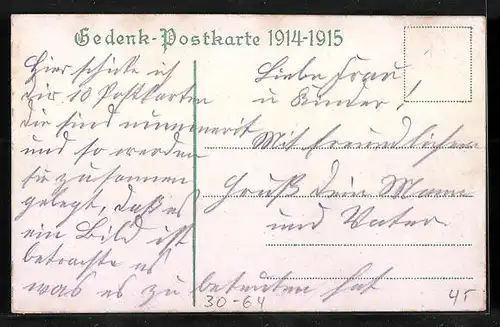 Gedenk-Postkarte 1914-1915
Hier schicke ich
dir 10 Postkarten
die sind nummerirt
und so werden
sie zusammen
gelegt, daß es
ein Bild ist
betrachte es
was es zu bedeuten hat
Liebe Frau
u Kinder!
Mit Freundlichen
Gruß Dein Mann
und Vater
30-64
45